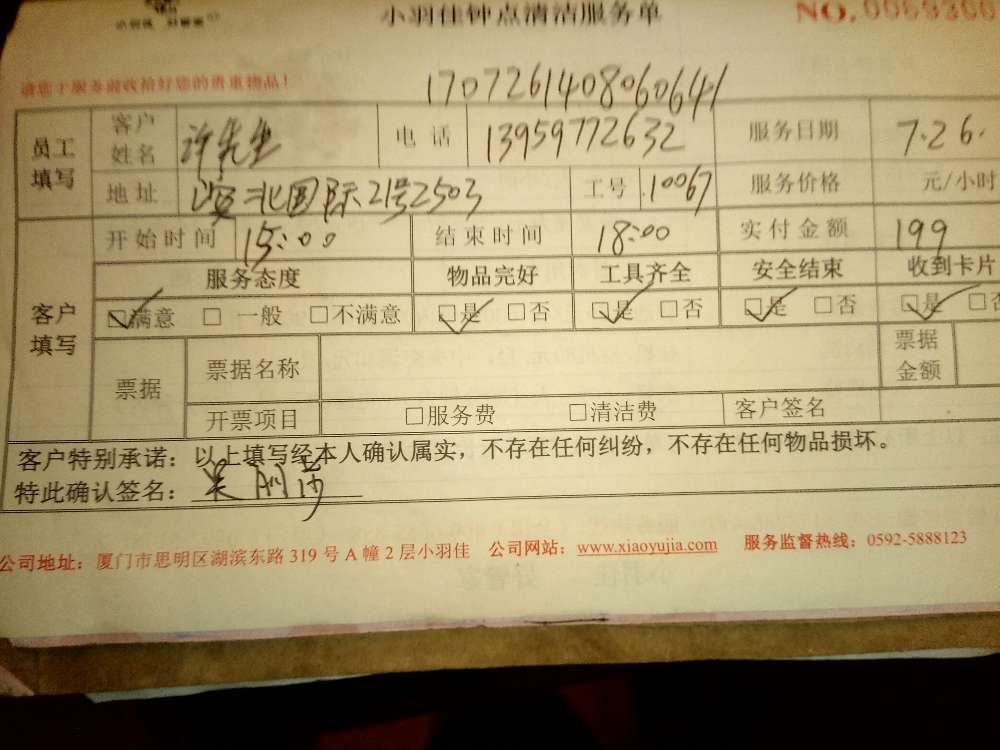 小羽佳 好管家
小羽佳钟点清洁服务单 NO.0069300
请您于服务前收拾好您的贵重物品！
1707261408060641
员工填写 客户姓名 许先生 电话 13959772632 服务日期 7.26.
地址 滨北国际21号2503 工号 10067 服务价格 元/小时
客户填写 开始时间 15:00 结束时间 18:00 实付金额 199
服务态度 物品完好 工具齐全 安全结束 收到卡片
☑满意 □一般 □不满意 ☑是 □否 ☑是 □否 ☑是 □否 ☑是 □否
票据 票据名称 票据金额
开票项目 □服务费 □清洁费 客户签名
客户特别承诺：以上填写经本人确认属实，不存在任何纠纷，不存在任何物品损坏。
特此确认签名：吴
公司地址：厦门市思明区湖滨东路 319 号 A 幢 2 层小羽佳 公司网站：www.xiaoyujia.com 服务监督热线：0592-5888123